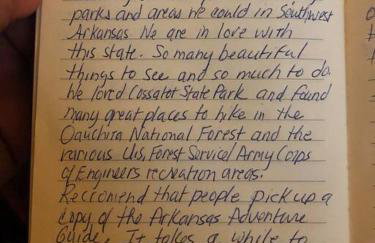 parks and areas he could in Southwest
Arkansas We are in love with
this state. So many beautiful
things to see and so much to do.
he loved Cossatot State Park and found
many great places to hike in the
Oauchira National Forest and the
various U.S. Forest Service/Army Corps
of Engineers recreation areas.
Reccomend that people pick up a
copy of the Arkansas Adventure
Guide. It takes a while to